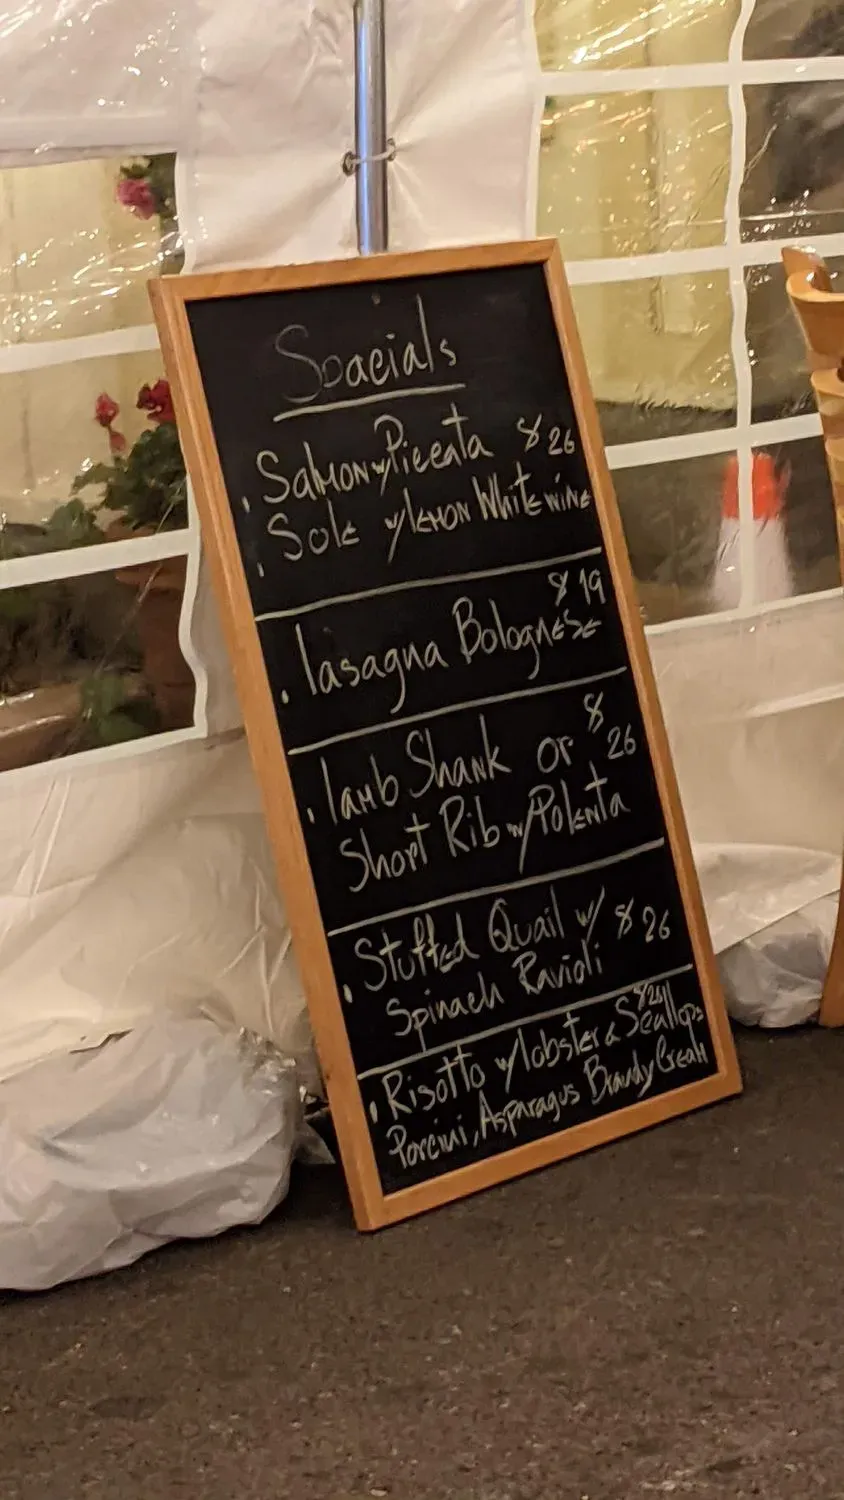 Spacials
. Salmon w/ Piccata $26
. Sole w/ lemon White wine
$19
. lasagna Bolognese
. lamb Shank or $26
Short Rib w/ Polenta
. Stuffed Quail w/ $26
Spinach Ravioli
. Risotto w/ lobster & Scallops
Porcini, Asparagus Brandy Cream